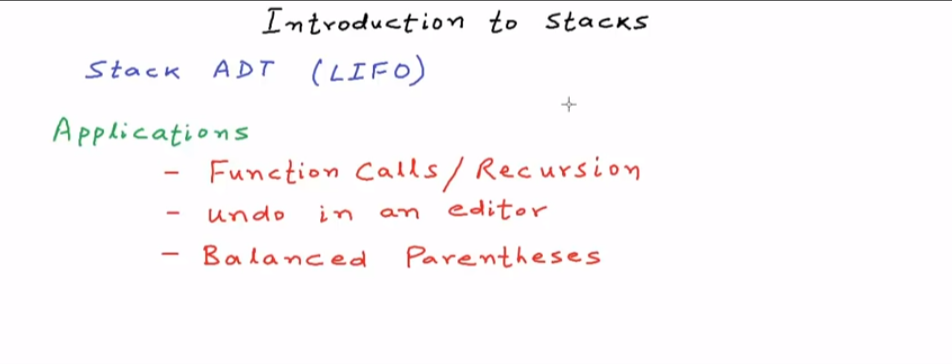 Introduction to stacks
Stack ADT (LIFO)
Applications
- Function Calls/Recursion
- undo in an editor
- Balanced Parentheses